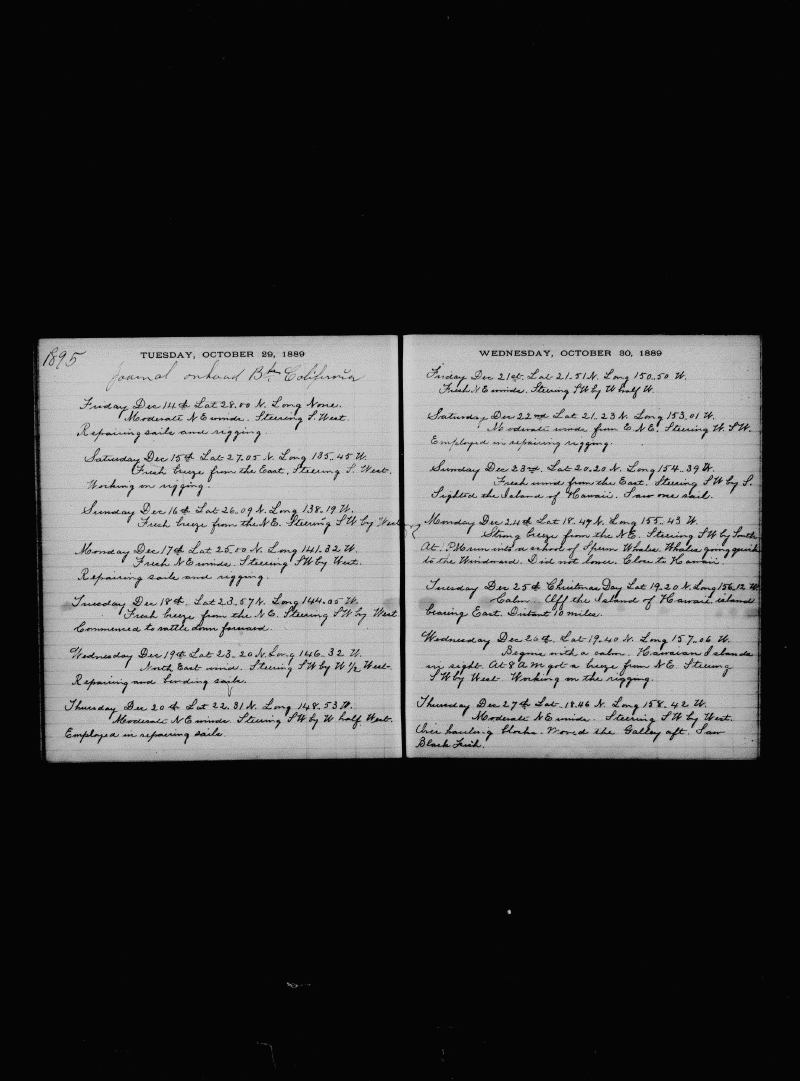 1895
TUESDAY, OCTOBER 29, 1889
Journal onboard Bk California
Friday Dec 14th Lat 28.00 N. Long None.
Moderate N E winds. Steering S. West.
Repairing sails and rigging.
Saturday Dec 15th Lat 27.05 N. Long 135..45 W.
Fresh breeze from the East. Steering S. West.
Working on rigging.
Sunday Dec 16th Lat 26.09 N. Long 138.19 W.
Fresh breeze from the N.E. Steering S W by West
Monday Dec 17th Lat 25.00 N. Long 141.32 W.
Fresh N E winds. Steering S W by West.
Repairing sails and rigging.
Tuesday Dec 18th. Lat 23..57 N. Long 144..05 W.
Fresh breeze from the N E. Steering S W by West
Commenced to rattle down forward.
Wednesday Dec 19th Lat 23..20 N. Long 146..32 W.
North East wind. Steering S W by W 1/2 West.
Repairing and bending sails.
Thursday Dec 20th Lat 22.31 N. Long 148..53 W.
Moderate N E winds. Steering S W by W half West.
Employed in repairing sails.
WEDNESDAY, OCTOBER 30, 1889
Friday Dec 21st. Lat 21.51 N. Long 150..50 W.
Fresh N E winds. Steering S W by W half W.
Saturday Dec 22nd Lat 21.23 N. Long 153.01 W.
Moderate winds from E. N. E. Steering W. S W.
Employed in repairing rigging.
Sunday Dec 23d. Lat 20.20 N. Long 154..39 W.
Fresh wind from the East. Steering S W by S.
Sighted the Island of Hawaii. Saw one sail.
Monday Dec 24th Lat 18.47 N. Long 155..43 W.
Strong breeze from the N E. Steering S W by South
At 1 P.M run into a school of Sperm Whales. Whales going quick
to the Windward. Did not lower. Close to Hawaii.
Tuesday Dec 25th Christmas Day Lat 19.20 N. Long 156.12 W.
Calm. Off the Island of Hawaii island
bearing East. Distant 10 miles.
Wednesday Dec 26th. Lat 19.40 N. Long 157..06 W.
Begins with a calm. Hawaian Islands
in sight. At 8 A M got a breeze from N E. Steering
S W by West. Working on the rigging.
Thursday Dec 27th Lat 18.46 N. Long 158..42 W.
Moderate N E winds. Steering S W by West.
hauling blocks. Moved the Galley aft. Saw
Black Fish.